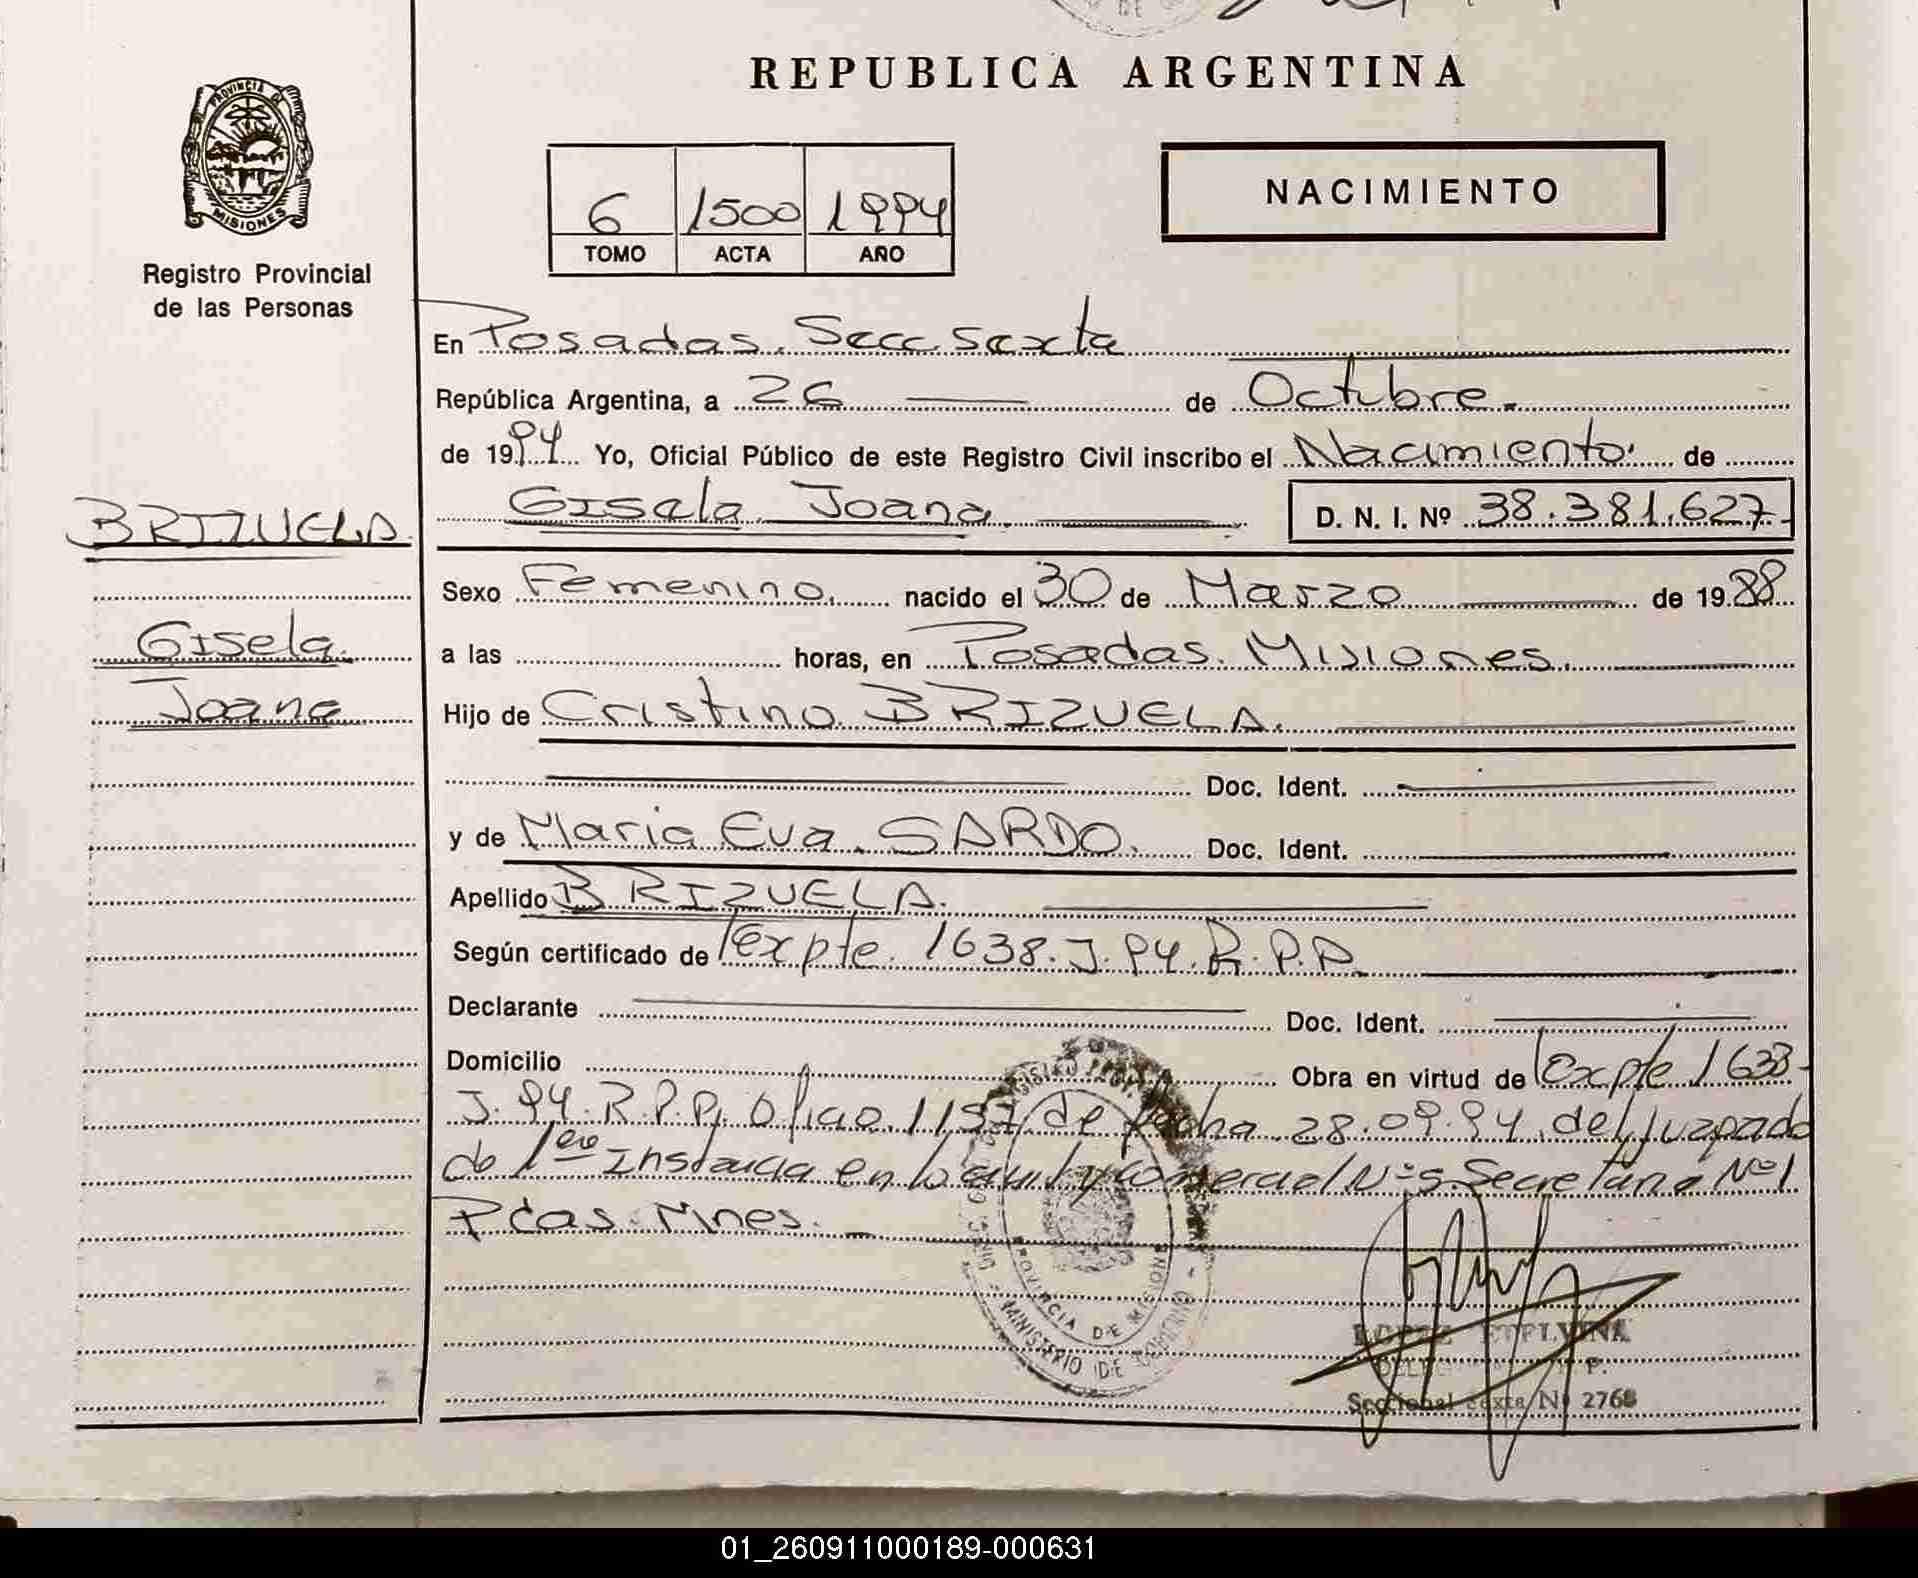 REPUBLICA ARGENTINA
PROVINCIA DE
MISIONES
Registro Provincial
de las Personas
6 1500 1994
TOMO ACTA AÑO
NACIMIENTO
En Posadas. Secc. Sexta
República Argentina, a 26 de Octubre.
de 1994 Yo, Oficial Público de este Registro Civil inscribo el Nacimiento de
Gisela Joana D. N. I. Nº 38.381.627
BRIZUELA
Gisela
Joana
Sexo Femenino. nacido el 30 de Marzo de 1988
a las horas, en Posadas. Misiones.
Hijo de Cristino BRIZUELA.
Doc. Ident.
y de Maria Eva SARDO. Doc. Ident.
Apellido BRIZUELA.
Según certificado de Expte. 1638. J. 94. R. P. P.
Declarante Doc. Ident.
Domicilio Obra en virtud de Expte 1638-
J. 94. R. P. P. Oficio de fecha 28.09.94. del Juzgado
de 1era Instancia en lo civil y comercial Nº 5 Secretaria Nº 1
Pdas. Mnes.
PROVINCIA DE MISIONES
MINISTERIO DE GOBIERNO
LOPEZ ETELVINA
Seccional Sexta Nº 2768
01_260911000189-000631